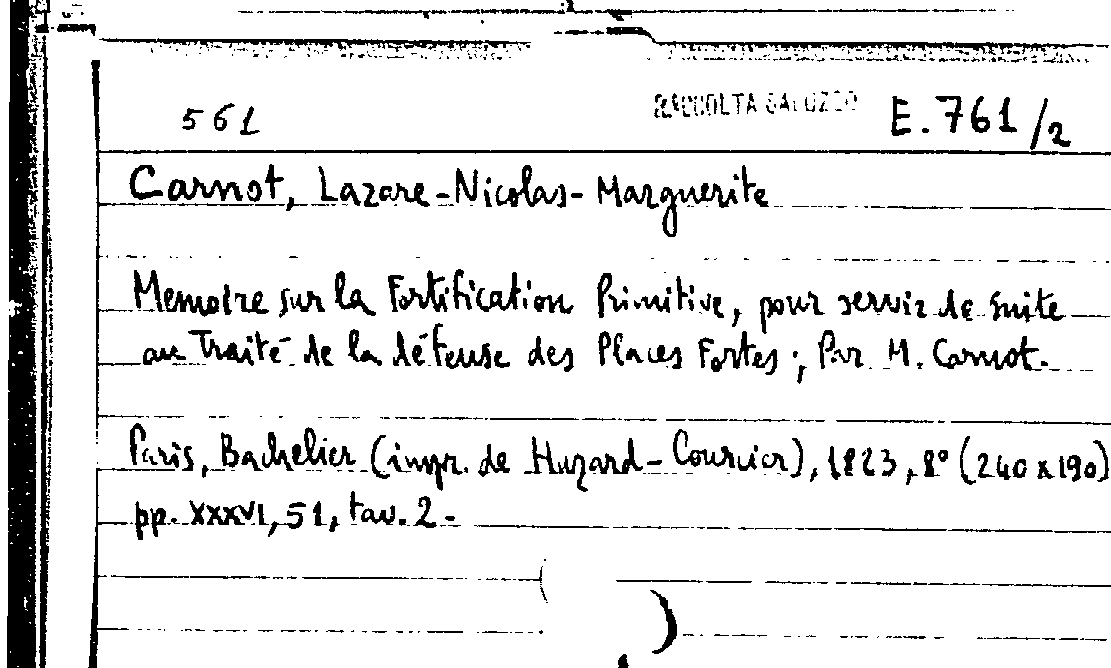 561 RACCOLTA SALUZZO E. 761/2
Carnot, Lazare-Nicolas-Marguerite
Memoire sur la Fortification Primitive, pour servir de suite
au Traité de la défense des Places Fortes; Par M. Carnot.
Paris, Bachelier (impr. de Huzard-Courcier), 1823, 8° (240x190)
pp. XXXVI, 51, tav. 2.